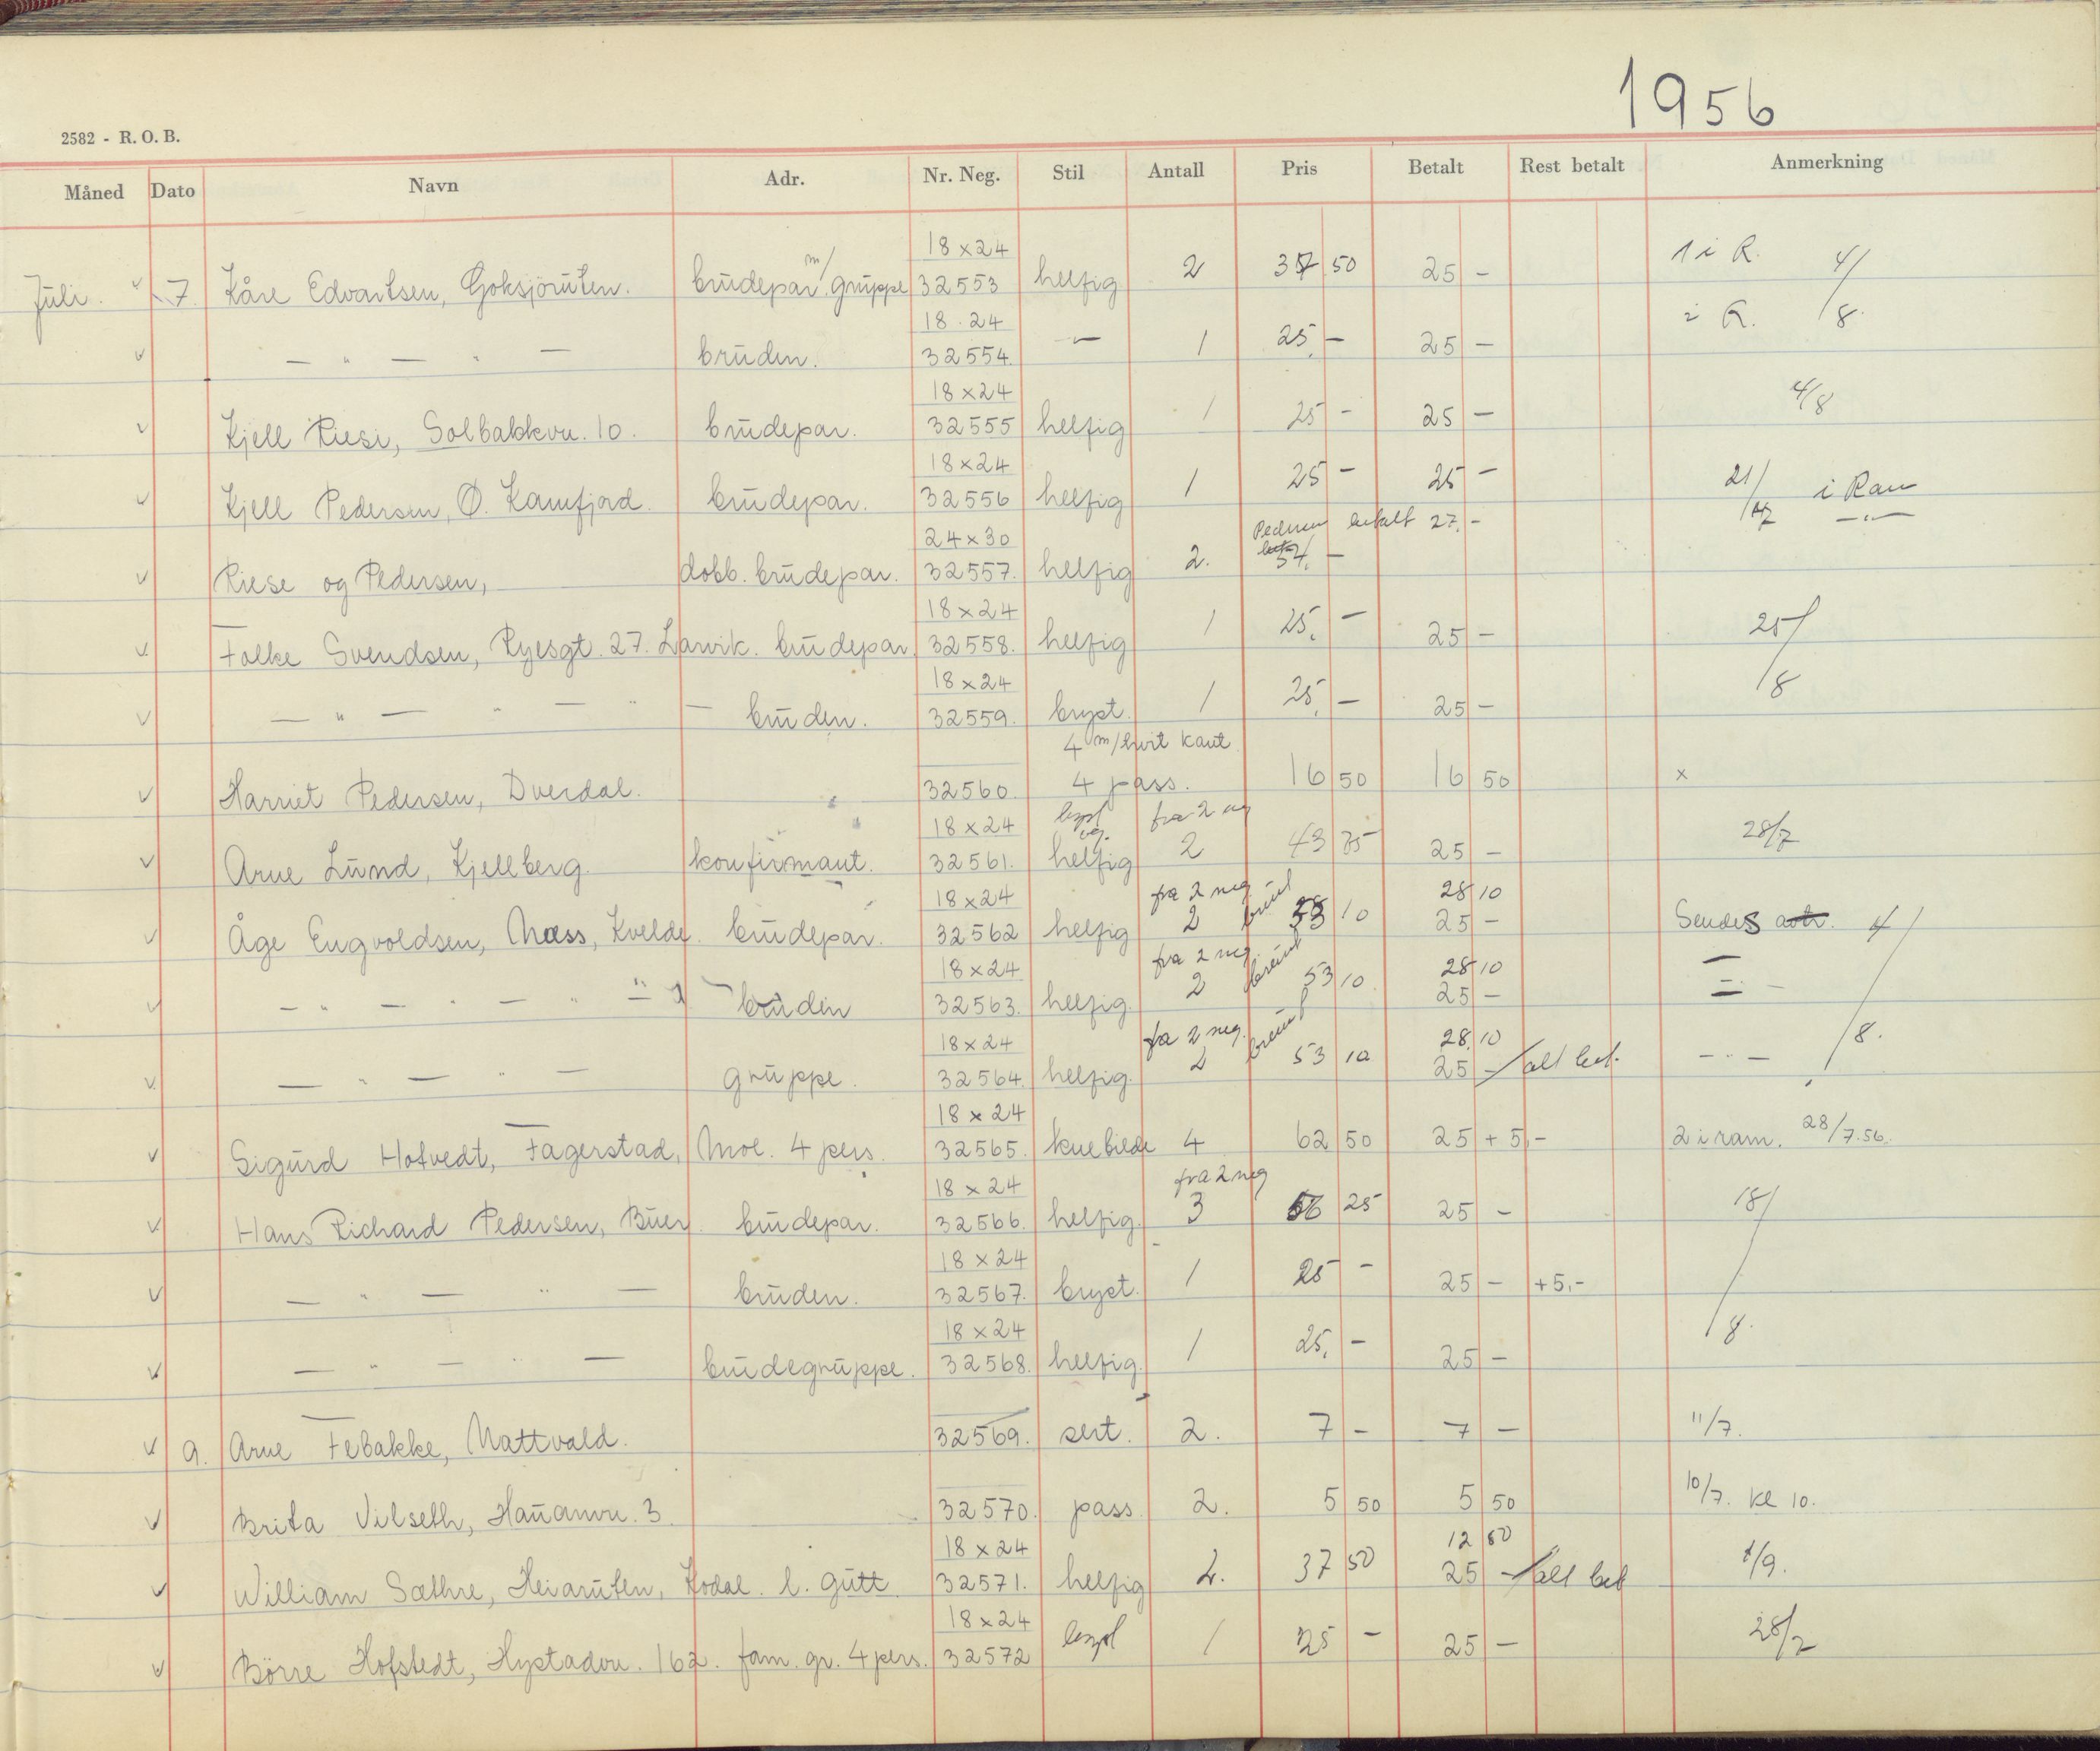 1956
2582 - R. O. B.
Måned Dato Navn Adr. Nr. Neg. Stil Antall Pris Betalt Rest betalt Anmerkning
18 x 24 1 i R.
Juli. 7. Kåre Edvartsen, Goksjöruten. brudepar m/ gruppe 32553 helfig 2 37 50 25 - 4/8.
18.24 i R.
— " — " — bruden. 32554. — 1 25,- 25 -
18 x 24
Kjell Riesi, Solbakkvn. 10. brudepar. 32555 helfig 1 25 - 25 - 4/8
18 x 24
Kjell Pedersen, Ø. Kamfjord. brudepar. 32556 helfig 1 25 - 25 - 21/7 i Ram
24 x 30 Pedersen betalt 27,- — " —
Riese og Pedersen, dobb. brudepar. 32557. helfig 2. 54,-
18 x 24
Folke Svendsen, Ryesgt. 27. Larvik. brudepar. 32558. helfig 1 25,- 25 - 25/8
18 x 24
— " — " — " — bruden. 32559. bryst. 1 25,- 25 -
4 m/hvit kant
Harriet Pedersen, Dverdal. 32560. 4 pass. 16 50 16 50 x
18 x 24 og. fra 2 neg
Arne Lund, Kjellberg. konfirmant. 32561. helfig 2 43 75 25 - 28/7
18 x 24 fra 2 neg 28 10
Åge Engvoldsen, Næss, Kvelde. brudepar. 32562 helfig 2 53 10 25 - Sendes 4/8.
18 x 24 fra 2 neg. 28 10
— " — " — " — bruden 32563. helfig. 2 53 10 25 - — " —
18 x 24 fra 2 neg. 28 10
— " — " — gruppe. 32564. helfig. 2 53 10 25 - alt bet. — " —
18 x 24
Sigurd Hotvedt, Fagerstad, Moe. 4 pers. 32565. knebilde 4 62 50 25 + 5,- 2 i ram. 28/7.56.
18 x 24 fra 2 neg
Hans Richard Pedersen, Buer. brudepar. 32566. helfig. 3 56 25 25 - 18/8.
18 x 24
— " — " — bruden. 32567. bryst. 1 25 - 25 - +5,-
18 x 24
— " — " — brudegruppe. 32568. helfig. 1 25,- 25 -
9. Arne Febakke, Nattvald. 32569. sert. 2. 7 - 7 - 11/7.
Brita Vilseth, Hauanvn. 3. 32570. pass 2. 5 50 5 50 10/7. kl 10.
18 x 24 12 50
William Sæthre, Heiaruten, Kodal. l. gutt. 32571. helfig 2. 37 50 25 - alt bet 1/9.
18 x 24
Börre Hofstedt, Hystadvn. 162. fam. gr. 4 pers. 32572 1 25 - 25 - 28/7